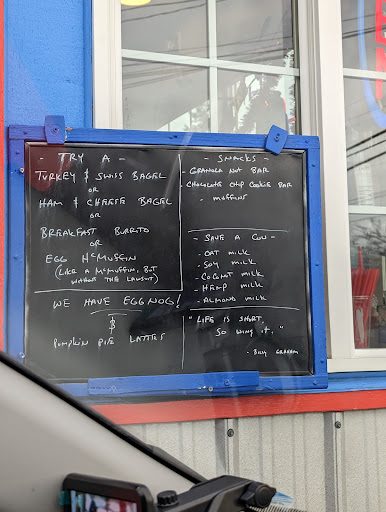 - TRY A -
TURKEY & SWISS BAGEL
OR
HAM & CHEESE BAGEL
OR
BREAKFAST BURRITO
OR
EGG McMUFFIN
(LIKE A McMUFFIN, BUT
WITHOUT THE LAWSUIT)
WE HAVE EGGNOG!
&
PUMPKIN PIE LATTES
- SNACKS -
- GRANOLA NUT BAR
- CHOCOLATE CHIP COOKIE BAR
- MUFFINS
- SAVE A COW -
- OAT MILK
- SOY MILK
- COCONUT MILK
- HEMP MILK
- ALMOND MILK
"LIFE IS SHORT,
SO WING IT."
- BILLY GRAHAM